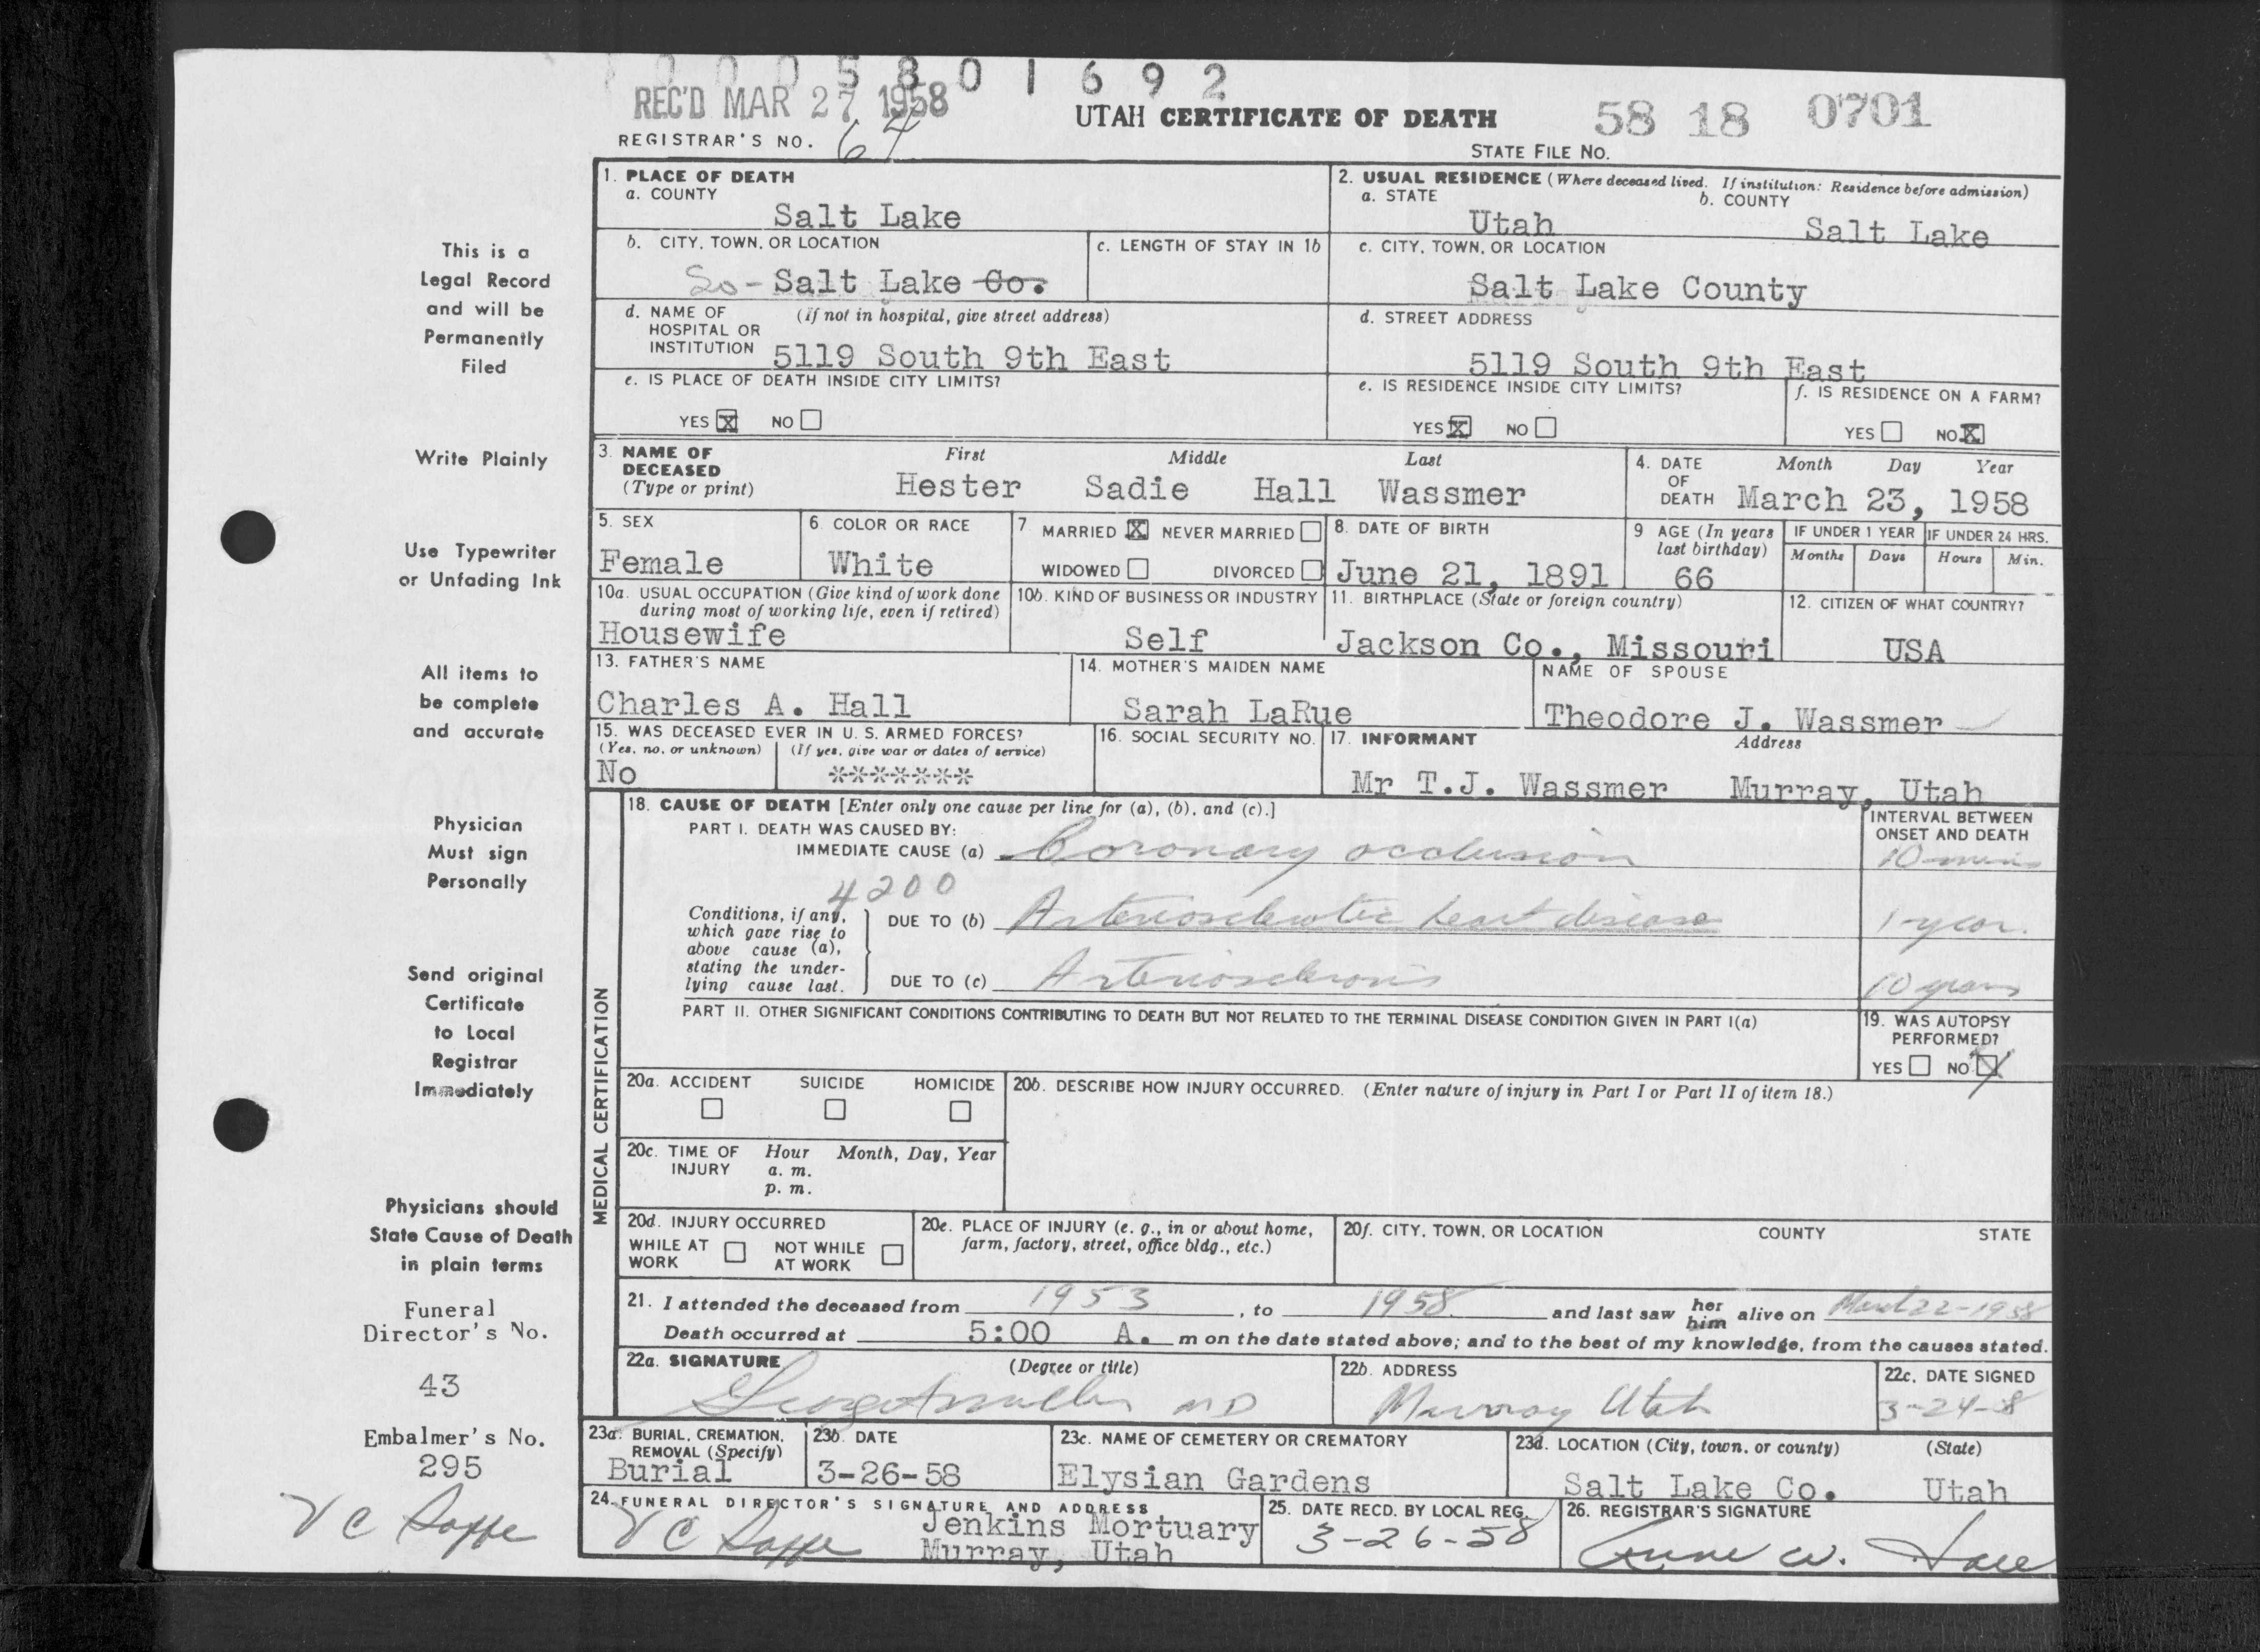 0005801692
REC'D MAR 27 1958
UTAH CERTIFICATE OF DEATH
58 18 0701
REGISTRAR'S NO. 64
STATE FILE NO.
This is a
Legal Record
and will be
Permanently
Filed
Write Plainly
Use Typewriter
or Unfading Ink
All items to
be complete
and accurate
Physician
Must sign
Personally
Send original
Certificate
to Local
Registrar
Immediately
Physicians should
State Cause of Death
in plain terms
Funeral
Director's No.
43
Embalmer's No.
295
V C
1. PLACE OF DEATH
a. COUNTY
Salt Lake
2. USUAL RESIDENCE (Where deceased lived. If institution: Residence before admission)
a. STATE
Utah
b. COUNTY
Salt Lake
b. CITY, TOWN, OR LOCATION
So- Salt Lake Co.
c. LENGTH OF STAY IN 1b
c. CITY, TOWN, OR LOCATION
Salt Lake County
d. NAME OF (If not in hospital, give street address)
HOSPITAL OR
INSTITUTION 5119 South 9th East
d. STREET ADDRESS
5119 South 9th East
e. IS PLACE OF DEATH INSIDE CITY LIMITS?
YES X NO
e. IS RESIDENCE INSIDE CITY LIMITS?
YES X NO
f. IS RESIDENCE ON A FARM?
YES NO X
3. NAME OF DECEASED (Type or print)
First Middle Last
Hester Sadie Hall Wassmer
4. DATE OF DEATH
Month Day Year
March 23, 1958
5. SEX
Female
6. COLOR OR RACE
White
7. MARRIED X NEVER MARRIED
WIDOWED DIVORCED
8. DATE OF BIRTH
June 21, 1891
9 AGE (In years last birthday)
66
IF UNDER 1 YEAR
Months Days
IF UNDER 24 HRS.
Hours Min.
10a. USUAL OCCUPATION (Give kind of work done during most of working life, even if retired)
Housewife
10b. KIND OF BUSINESS OR INDUSTRY
Self
11. BIRTHPLACE (State or foreign country)
Jackson Co., Missouri
12. CITIZEN OF WHAT COUNTRY?
USA
13. FATHER'S NAME
Charles A. Hall
14. MOTHER'S MAIDEN NAME
Sarah LaRue
NAME OF SPOUSE
Theodore J. Wassmer
15. WAS DECEASED EVER IN U. S. ARMED FORCES?
(Yes, no, or unknown) (If yes, give war or dates of service)
No *******
16. SOCIAL SECURITY NO.
17. INFORMANT Address
Mr T.J. Wassmer Murray, Utah
MEDICAL CERTIFICATION
18. CAUSE OF DEATH [Enter only one cause per line for (a), (b), and (c).]
INTERVAL BETWEEN
ONSET AND DEATH
PART I. DEATH WAS CAUSED BY:
IMMEDIATE CAUSE (a) Coronary occlusion 10 mins
4200
Conditions, if any, which gave rise to above cause (a), stating the underlying cause last.
DUE TO (b) Arteriosclerotic heart disease 1 year.
DUE TO (c) Arteriosclerosis 10 years
PART II. OTHER SIGNIFICANT CONDITIONS CONTRIBUTING TO DEATH BUT NOT RELATED TO THE TERMINAL DISEASE CONDITION GIVEN IN PART I(a)
19. WAS AUTOPSY PERFORMED?
YES NO X
20a. ACCIDENT SUICIDE HOMICIDE
20b. DESCRIBE HOW INJURY OCCURRED. (Enter nature of injury in Part I or Part II of item 18.)
20c. TIME OF INJURY
Hour Month, Day, Year
a. m.
p. m.
20d. INJURY OCCURRED
WHILE AT WORK NOT WHILE AT WORK
20e. PLACE OF INJURY (e. g., in or about home, farm, factory, street, office bldg., etc.)
20f. CITY, TOWN, OR LOCATION COUNTY STATE
21. I attended the deceased from 1953, to 1958. and last saw her him alive on March 22-1958
Death occurred at 5:00 A. m on the date stated above; and to the best of my knowledge, from the causes stated.
22a. SIGNATURE (Degree or title)
MD
22b. ADDRESS
Murray Utah
22c. DATE SIGNED
3-24-8
23a. BURIAL, CREMATION, REMOVAL (Specify)
Burial
23b. DATE
3-26-58
23c. NAME OF CEMETERY OR CREMATORY
Elysian Gardens
23d. LOCATION (City, town, or county) (State)
Salt Lake Co. Utah
24. FUNERAL DIRECTOR'S SIGNATURE AND ADDRESS
V C Jenkins Mortuary
Murray, Utah
25. DATE RECD. BY LOCAL REG.
3-26-58
26. REGISTRAR'S SIGNATURE
W.